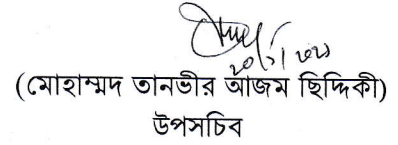 (মোহাম্মদ তানভীর আজম ছিদ্দিকী)
উপসচিব